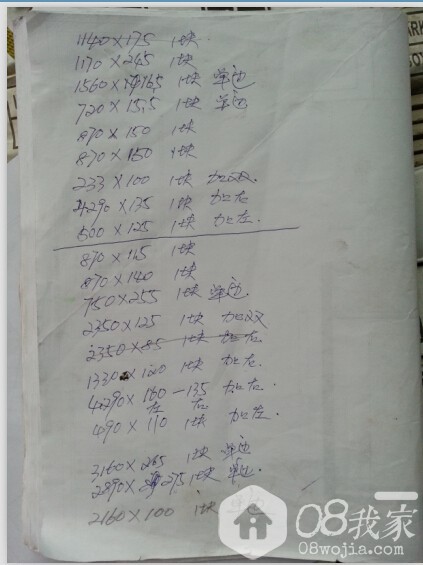 1140×175 1块
1170×245 1块
1560×165 1块 单边
720×155 1块 单边
870×150 1块
870×150 1块
233×100 1块 加双
4290×135 1块 加左
500×125 1块 加左.
870×145 1块
870×140 1块
750×255 1块 单边.
2350×125 1块 加双
2350×85 1块 加左
1330×120 1块 加左.
4290×160-135 加左.
左 右
490×110 1块 加左.
3160×265 1块 单边
2890×275 1块 单边.
2160×100 1块
08我家
08wojia.com